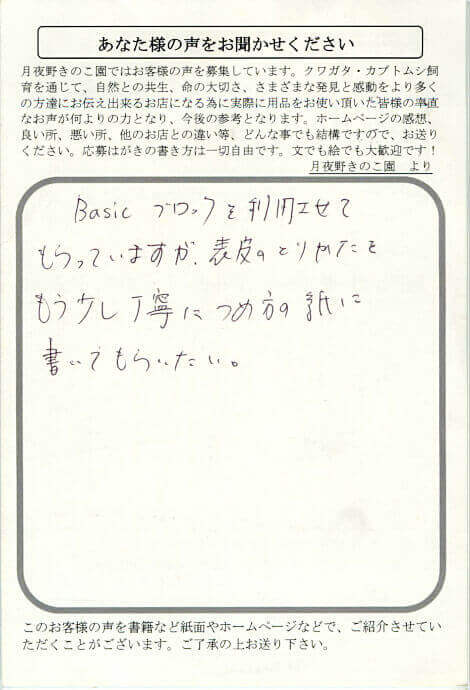 あなた様の声をお聞かせください
月夜野きのこ園ではお客様の声を募集しています。クワガタ・カブトムシ飼
育を通じて、自然との共生、命の大切さ、さまざまな発見と感動をより多く
の方達にお伝え出来るお店になる為に実際に用品をお使い頂いた皆様の率直
なお声が何よりの力となり、今後の参考となります。ホームページの感想、
良い所、悪い所、他のお店との違い等、どんな事でも結構ですので、お送り
ください。応募はがきの書き方は一切自由です。文でも絵でも大歓迎です！
月夜野きのこ園　より
Basic ブロックを利用させて
もらっていますが、表皮のとりかたを
もう少し丁寧につめ方の紙に
書いてもらいたい。
このお客様の声を書籍など紙面やホームページなどで、ご紹介させてい
ただくことがございます。ご了承の上お送り下さい。